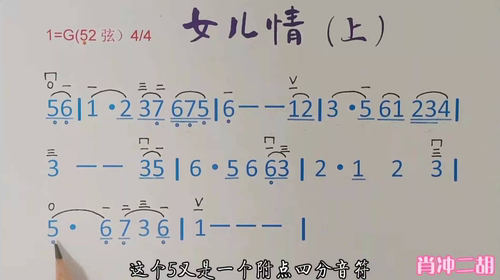 1=G(52 弦) 4/4
女儿情(上)
56|1·2 37 675|6--12|3·5 61 234|
3 -- 35|6·5 6 63|2·1 2 3|
5· 6736|1---|
这个5又是一个附点四分音符
肖冲二胡